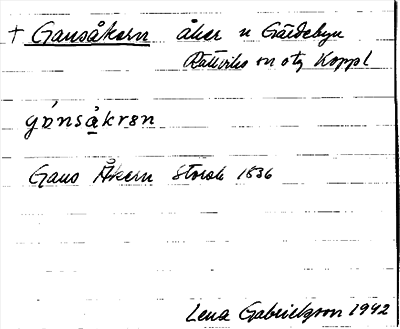 + Gansåkern åker n Gärdebyn
Rättviks sn o tg Koppl
Gans Åkern Storsk 1836
Lena Gabrielsson 1942